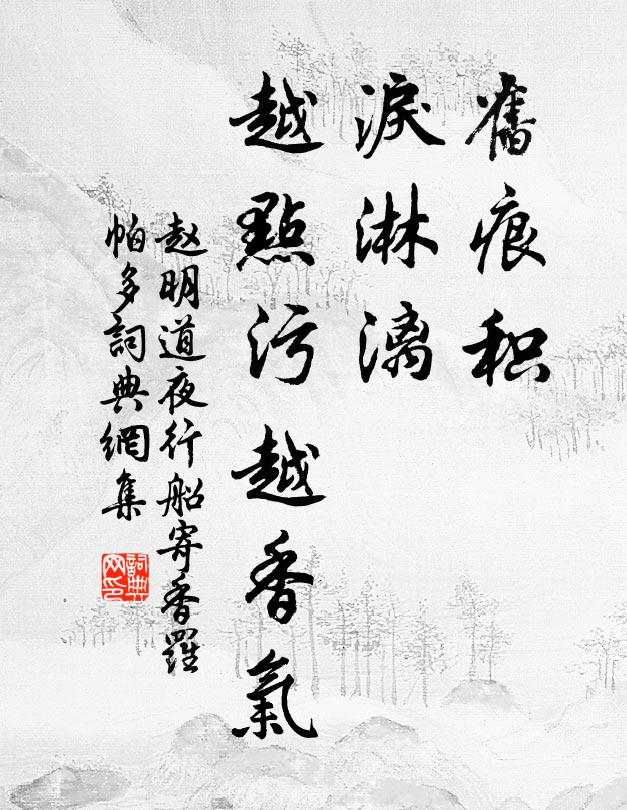 舊痕积
淚淋漓
越點污越香氣
赵明道夜行船寄香羅
帕多詞典網集
詞典
网印